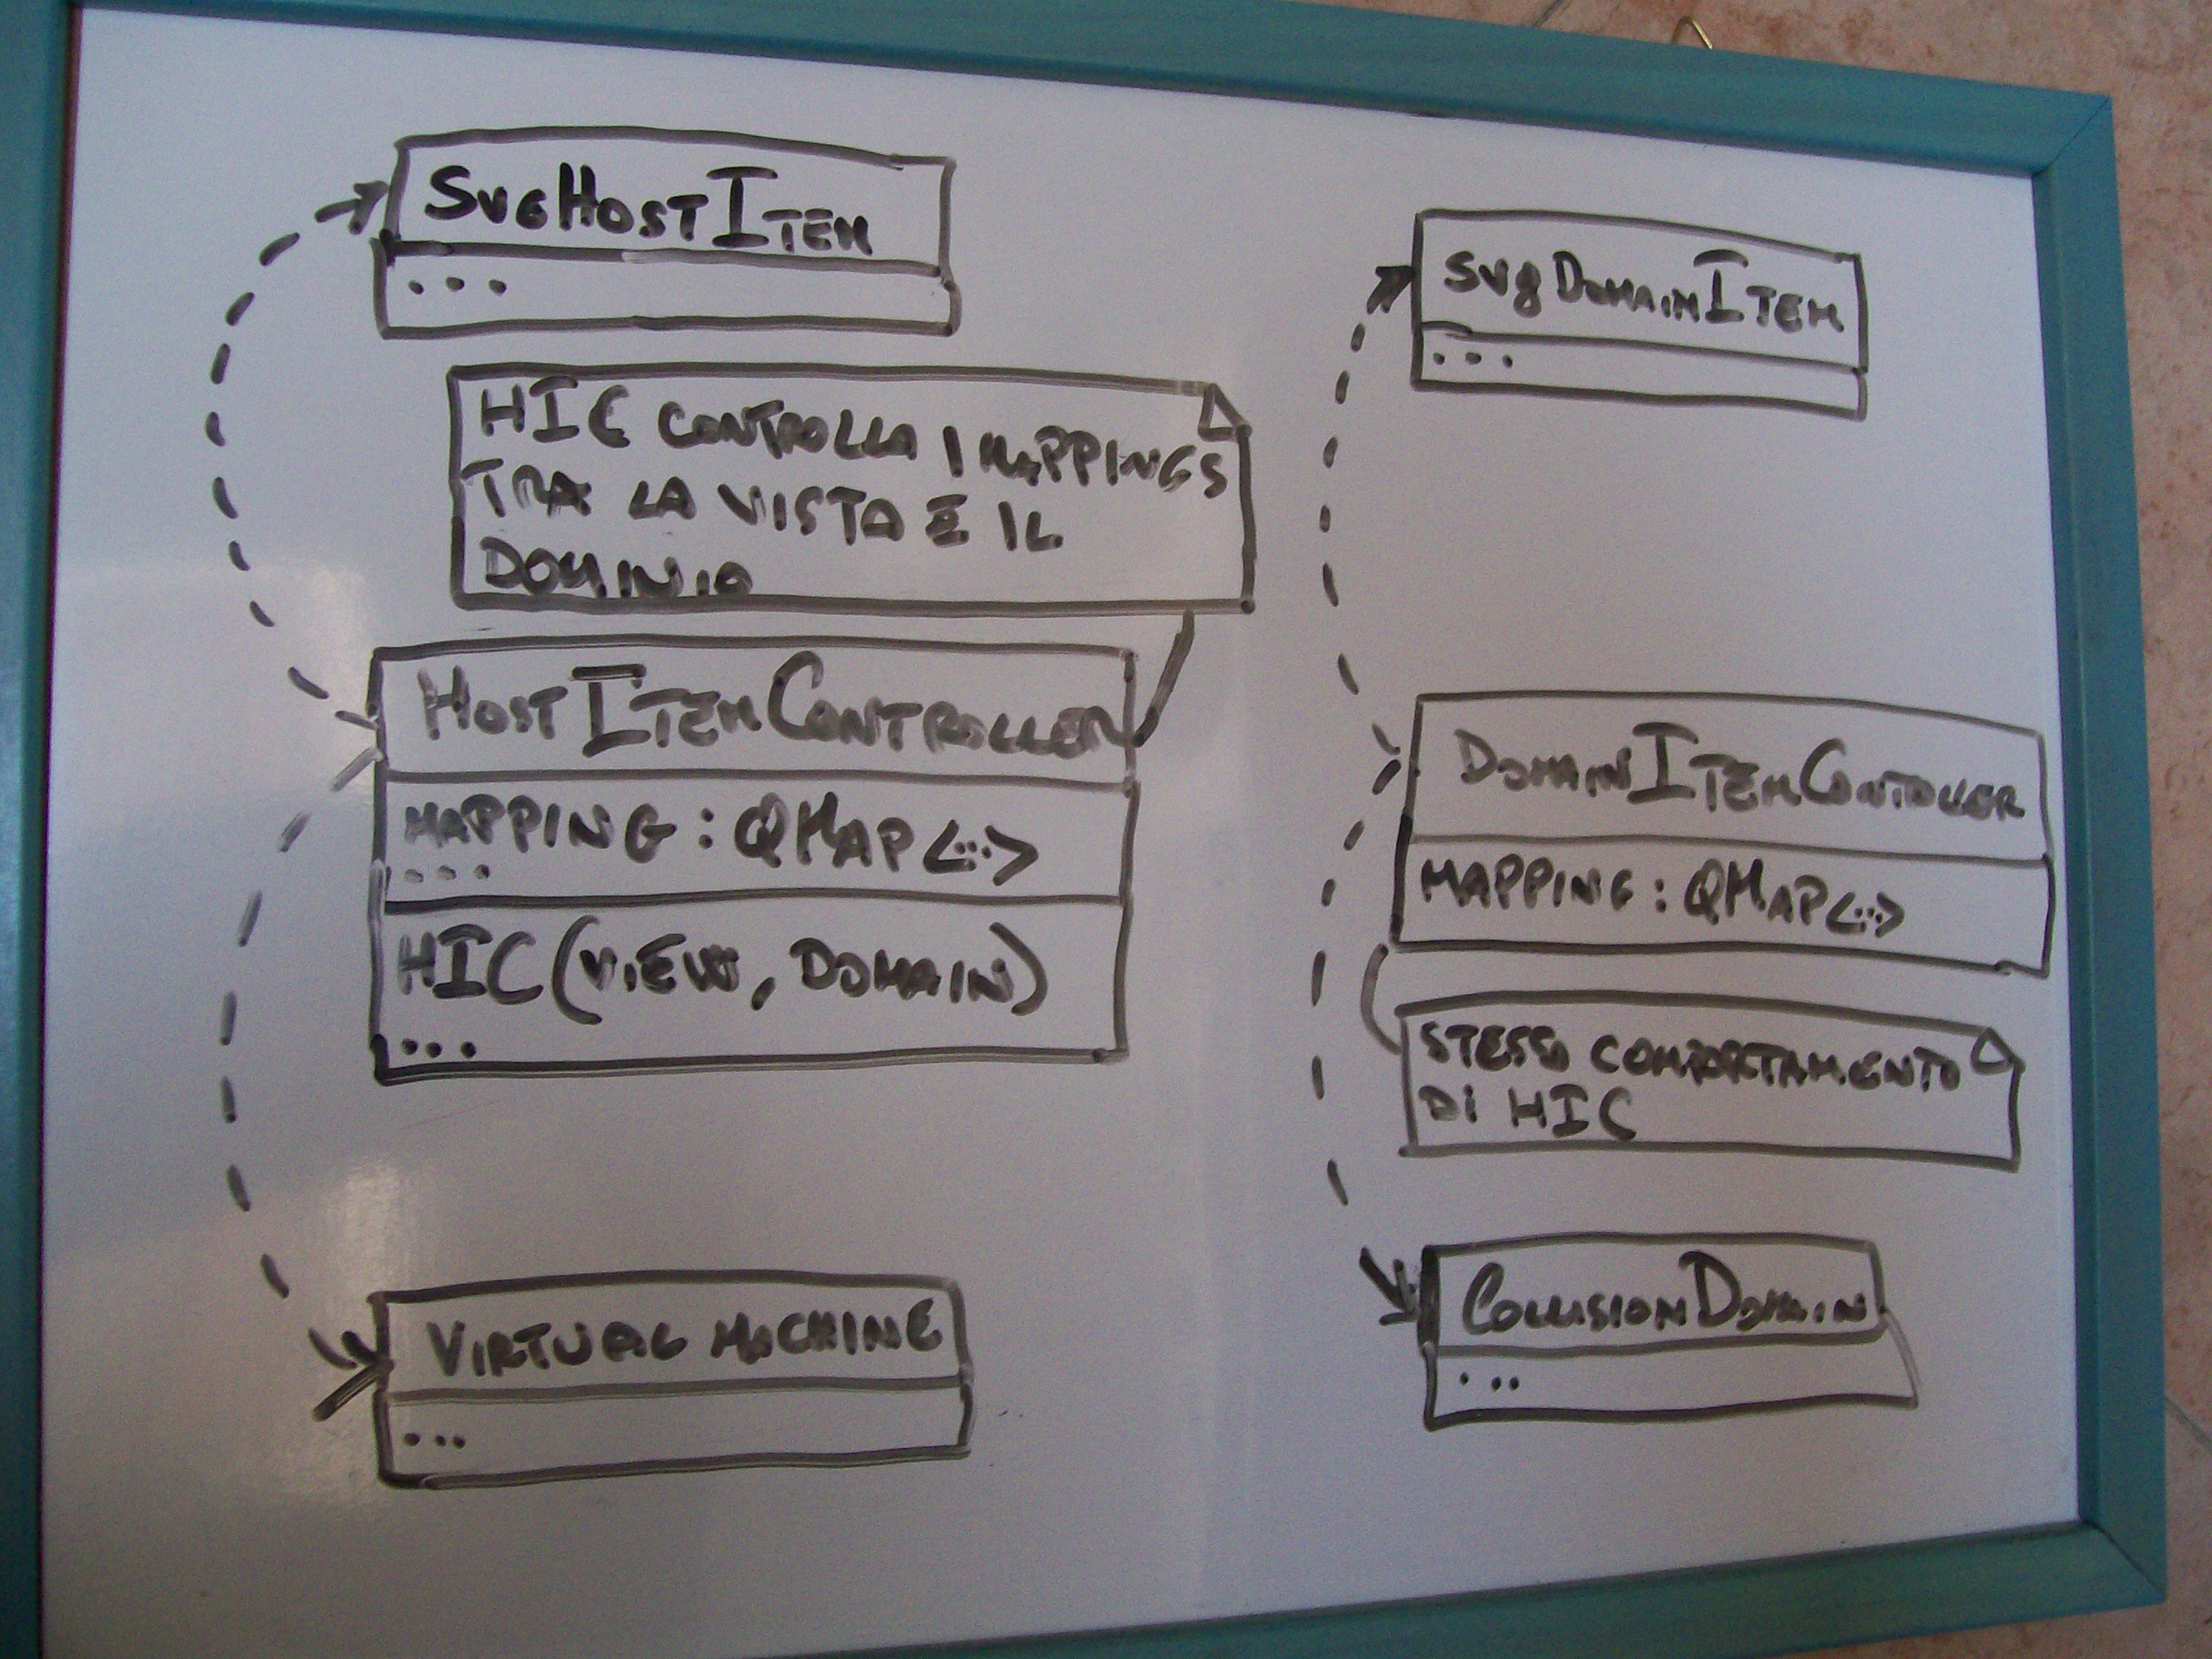 SvgHostItem
...
HIC CONTROLLA I MAPPINGS
TRA LA VISTA E IL
DOMINIO
HostItemController
MAPPING : QMAP<...>
...
HIC (VIEW, DOMAIN)
...
VIRTUAL MACHINE
...
SvgDomainItem
...
DomainItemContoller
MAPPING : QMAP<...>
STESSO COMPORTAMENTO
DI HIC
CollisionDomain
...